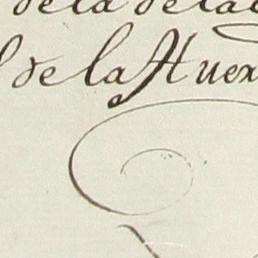 de la de la
de la Huer